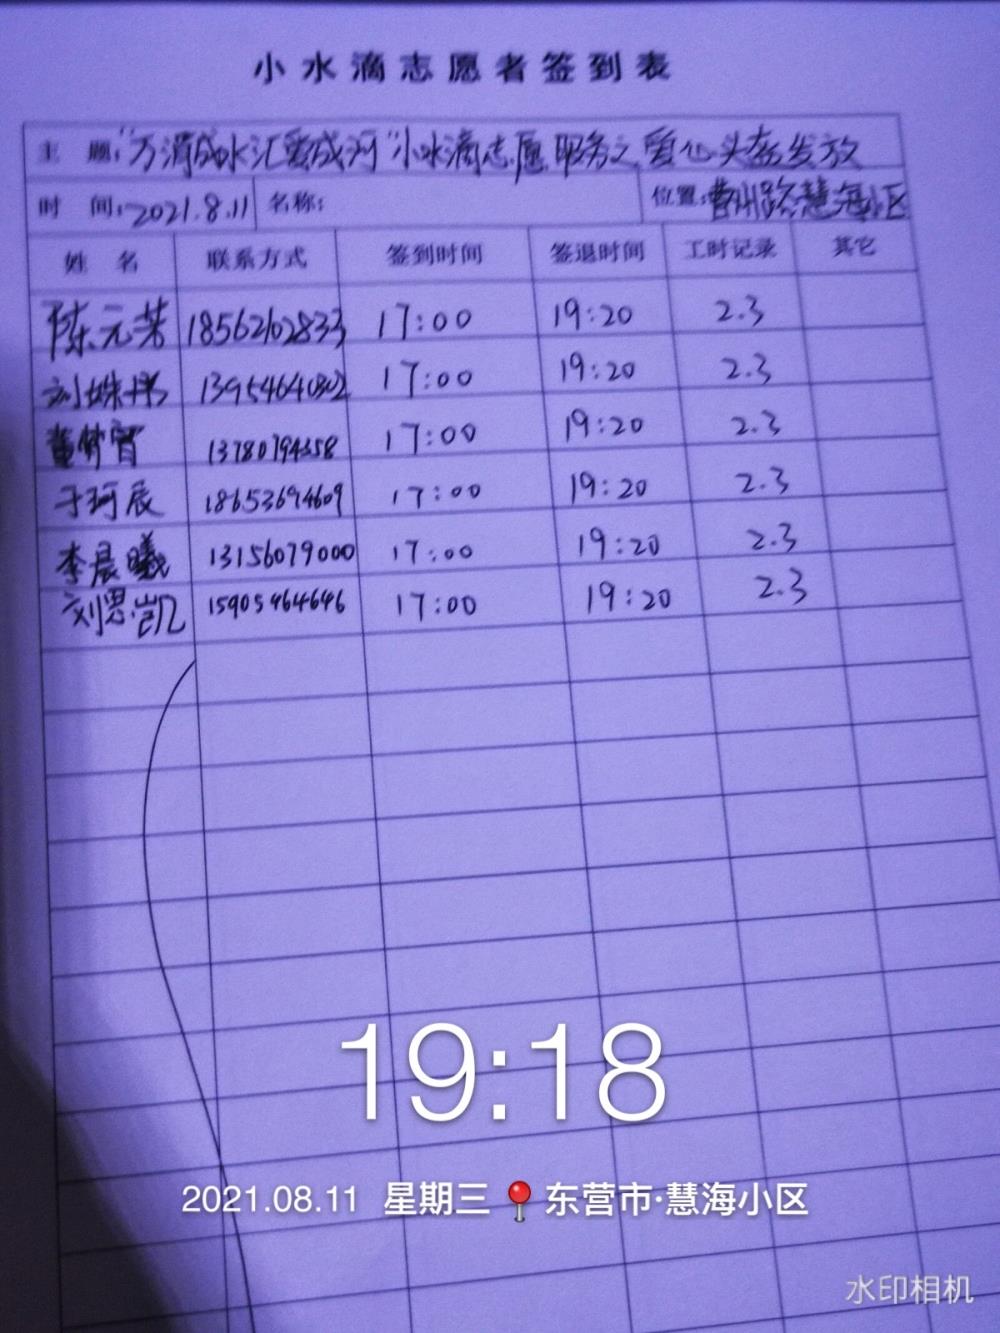 小水滴志愿者签到表
主 题：“万滴成水汇爱成河”小水滴志愿服务之爱心头套发放
时 间：2021.8.11 名称： 位置：曹州路慧海小区
姓 名 联系方式 签到时间 签退时间 工时记录 其它
陈元芳 18562102833 17:00 19:20 2.3
刘姝彤 13954640302 17:00 19:20 2.3
董梦睿 13780794558 17:00 19:20 2.3
于珂辰 18653694609 17:00 19:20 2.3
李晨曦 13156079000 17:00 19:20 2.3
刘思凯 15905464646 17:00 19:20 2.3
19:18
2021.08.11 星期三 东营市·慧海小区
水印相机